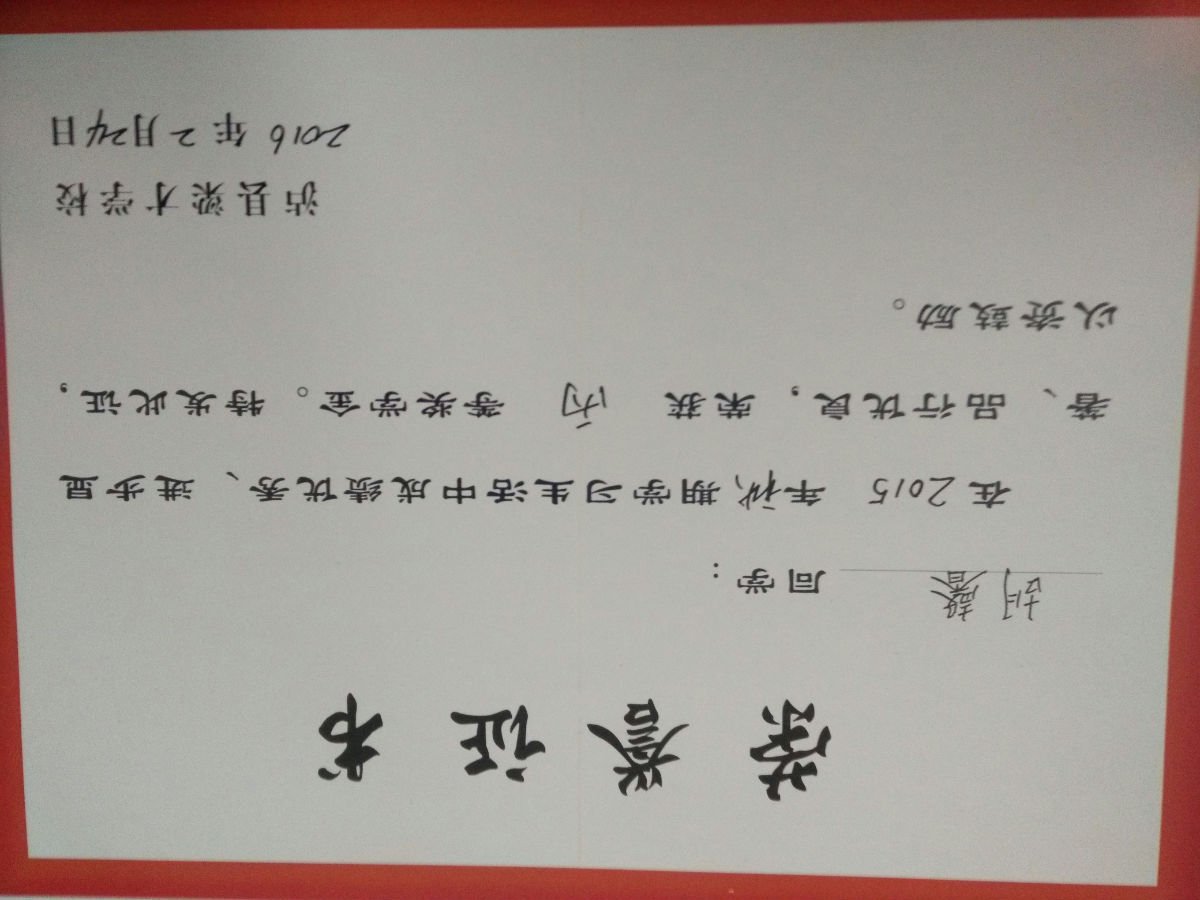 荣誉证书
胡馨 同学：
在 2015 年秋期学习生活中成绩优秀、进步显
著、品行优良，荣获 丙 等奖学金。特发此证，
以资鼓励。
泸县梁才学校
2016 年 2 月 24 日